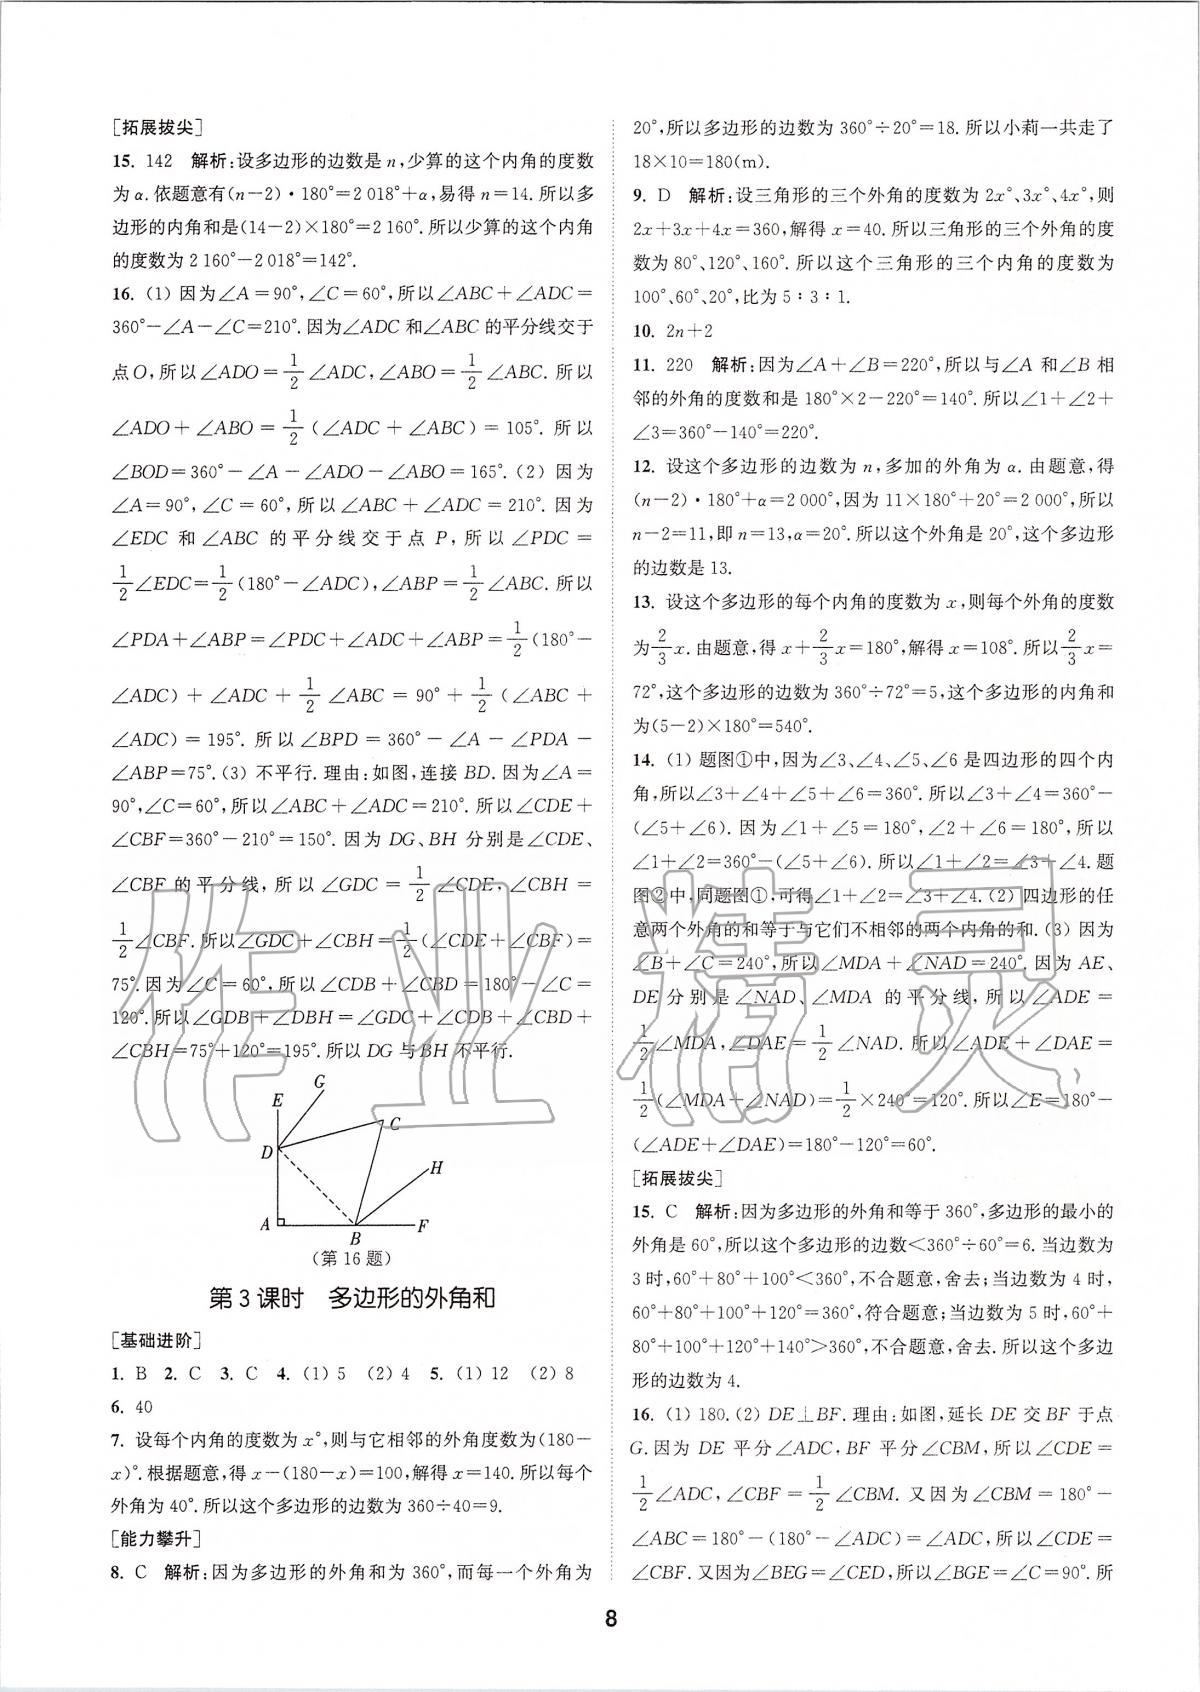 [拓展拔尖]
15. 142 解析:设多边形的边数是 n,少算的这个内角的度数
为 α.依题意有(n−2)·180°=2 018°+α,易得 n=14.所以多
边形的内角和是(14−2)×180°=2 160°.所以少算的这个内角
的度数为 2 160°−2 018°=142°.
16. (1) 因为∠A=90°,∠C=60°,所以∠ABC+∠ADC=
360°−∠A−∠C=210°.因为∠ADC 和∠ABC 的平分线交于
点O,所以∠ADO=1/2∠ADC,∠ABO=1/2∠ABC.所以
∠ADO+∠ABO=1/2(∠ADC+∠ABC)=105°.所以
∠BOD=360°−∠A−∠ADO−∠ABO=165°.(2) 因为
∠A=90°,∠C=60°,所以∠ABC+∠ADC=210°.因为
∠EDC 和∠ABC 的平分线交于点 P,所以∠PDC=
1/2∠EDC=1/2(180°−∠ADC),∠ABP=1/2∠ABC.所以
∠PDA+∠ABP=∠PDC+∠ADC+∠ABP=1/2(180°−
∠ADC)+∠ADC+1/2∠ABC=90°+1/2(∠ABC+
∠ADC)=195°.所以∠BPD=360°−∠A−∠PDA−
∠ABP=75°.(3) 不平行.理由:如图,连接 BD.因为∠A=
90°,∠C=60°,所以∠ABC+∠ADC=210°.所以∠CDE+
∠CBF=360°−210°=150°.因为 DG、BH 分别是∠CDE、
∠CBF 的平分线,所以∠GDC=1/2∠CDE,∠CBH=
1/2∠CBF.所以∠GDC+∠CBH=1/2(∠CDE+∠CBF)=
75°.因为∠C=60°,所以∠CDB+∠CBD=180°−∠C=
120°.所以∠GDB+∠DBH=∠GDC+∠CDB+∠CBD+
∠CBH=75°+120°=195°.所以 DG 与 BH 不平行.
G
E
C
D
H
A
B
F
(第 16 题)
第 3 课时 多边形的外角和
[基础进阶]
1. B 2. C 3. C 4. (1) 5 (2) 4 5. (1) 12 (2) 8
6. 40
7. 设每个内角的度数为 x°,则与它相邻的外角度数为(180−
x)°.根据题意,得 x−(180−x)=100,解得 x=140.所以每个
外角为 40°.所以这个多边形的边数为 360÷40=9.
[能力攀升]
8. C 解析:因为多边形的外角和为 360°,而每一个外角为
20°,所以多边形的边数为 360°÷20°=18.所以小莉一共走了
18×10=180(m).
9. D 解析:设三角形的三个外角的度数为 2x°、3x°、4x°,则
2x+3x+4x=360,解得 x=40.所以三角形的三个外角的度
数为 80°、120°、160°.所以这个三角形的三个内角的度数为
100°、60°、20°,比为 5∶3∶1.
10. 2n+2
11. 220 解析:因为∠A+∠B=220°,所以与∠A 和∠B 相
邻的外角的度数和是 180°×2−220°=140°.所以∠1+∠2+
∠3=360°−140°=220°.
12. 设这个多边形的边数为 n,多加的外角为 α.由题意,得
(n−2)·180°+α=2 000°,因为 11×180°+20°=2 000°,所以
n−2=11,即 n=13,α=20°.所以这个外角是 20°,这个多边形
的边数是 13.
13. 设这个多边形的每个内角的度数为 x,则每个外角的度数
为2/3x.由题意,得 x+2/3x=180°,解得 x=108°.所以2/3x=
72°,这个多边形的边数为 360°÷72°=5,这个多边形的内角和
为(5−2)×180°=540°.
14. (1) 题图①中,因为∠3、∠4、∠5、∠6 是四边形的四个内
角,所以∠3+∠4+∠5+∠6=360°.所以∠3+∠4=360°−
(∠5+∠6).因为∠1+∠5=180°,∠2+∠6=180°,所以
∠1+∠2=360°−(∠5+∠6).所以∠1+∠2=∠3+∠4.题
图②中,同题图①,可得∠1+∠2=∠3+∠4.(2) 四边形的任
意两个外角的和等于与它们不相邻的两个内角的和.(3) 因为
∠B+∠C=240°,所以∠MDA+∠NAD=240°.因为 AE、
DE 分别是∠NAD、∠MDA 的平分线,所以∠ADE=
1/2∠MDA,∠DAE=1/2∠NAD.所以∠ADE+∠DAE=
1/2(∠MDA+∠NAD)=1/2×240°=120°.所以∠E=180°−
(∠ADE+∠DAE)=180°−120°=60°.
[拓展拔尖]
15. C 解析:因为多边形的外角和等于 360°,多边形的最小的
外角是 60°,所以这个多边形的边数<360°÷60°=6.当边数为
3 时,60°+80°+100°<360°,不合题意,舍去;当边数为 4 时,
60°+80°+100°+120°=360°,符合题意;当边数为 5 时,60°+
80°+100°+120°+140°>360°,不合题意,舍去.所以这个多边
形的边数为 4.
16. (1) 180.(2) DE⊥BF.理由:如图,延长 DE 交 BF 于点
G.因为 DE 平分∠ADC,BF 平分∠CBM,所以∠CDE=
1/2∠ADC,∠CBF=1/2∠CBM.又因为∠CBM=180°−
∠ABC=180°−(180°−∠ADC)=∠ADC,所以∠CDE=
∠CBF.又因为∠BEG=∠CED,所以∠BGE=∠C=90°.所
8
作业精灵